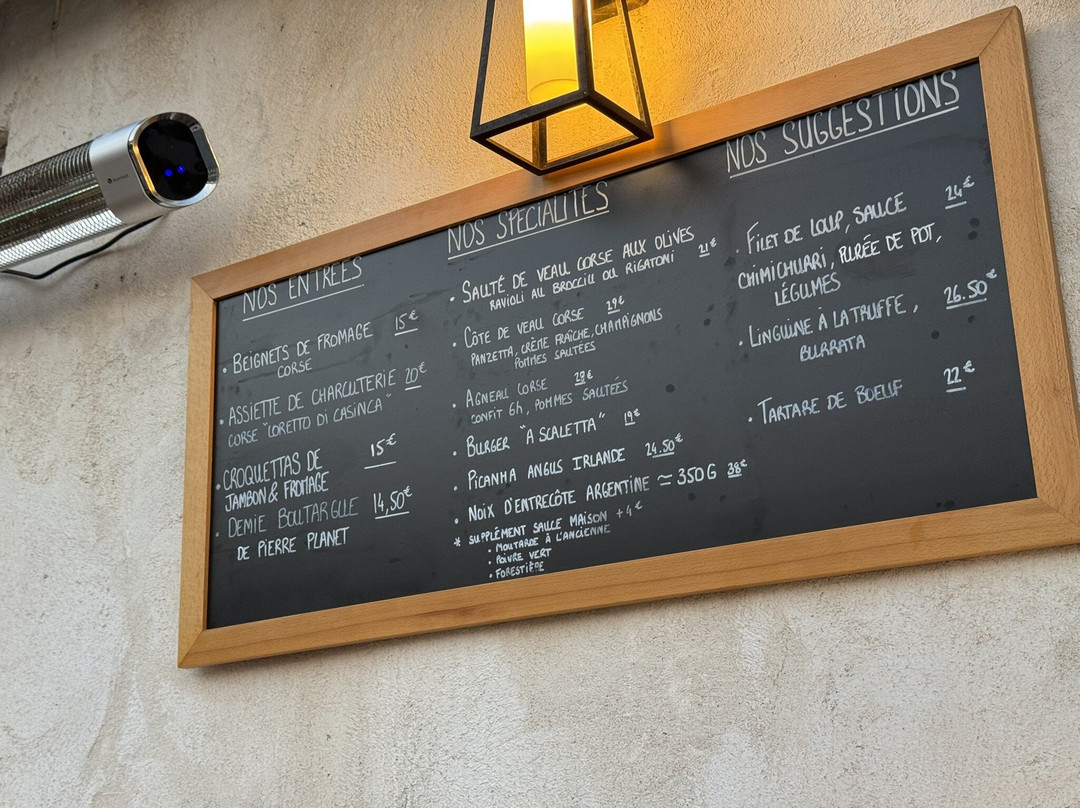 NOS ENTRÉES
• BEIGNETS DE FROMAGE 15€
CORSE
• ASSIETTE DE CHARCUTERIE 20€
CORSE "LORETTO DI CASINCA"
• CROQUETTAS DE 15€
JAMBON & FROMAGE
• DEMIE BOUTARGUE 14,50€
DE PIERRE PLANET
NOS SPÉCIALITÉS
• SAUTÉ DE VEAU CORSE AUX OLIVES 21€
RAVIOLI AU BROCCIU OU RIGATONI
• CÔTE DE VEAU CORSE 29€
PANZETTA, CRÈME FRAÎCHE, CHAMPIGNONS
POMMES SAUTÉES
• AGNEAU CORSE 29€
CONFIT 6h, POMMES SAUTÉES
• BURGER "A SCALETTA" 19€
• PICANHA ANGUS IRLANDE 24.50€
• NOIX D'ENTRECÔTE ARGENTINE ≃ 350G 38€
* SUPPLÉMENT SAUCE MAISON +4€
• MOUTARDE À L'ANCIENNE
• POIVRE VERT
• FORESTIÈRE
NOS SUGGESTIONS
• FILET DE LOUP, SAUCE 24€
CHIMICHURRI, PURÉE DE POT,
LÉGUMES
• LINGUINE À LA TRUFFE, 26.50€
BURRATA
• TARTARE DE BOEUF 22€